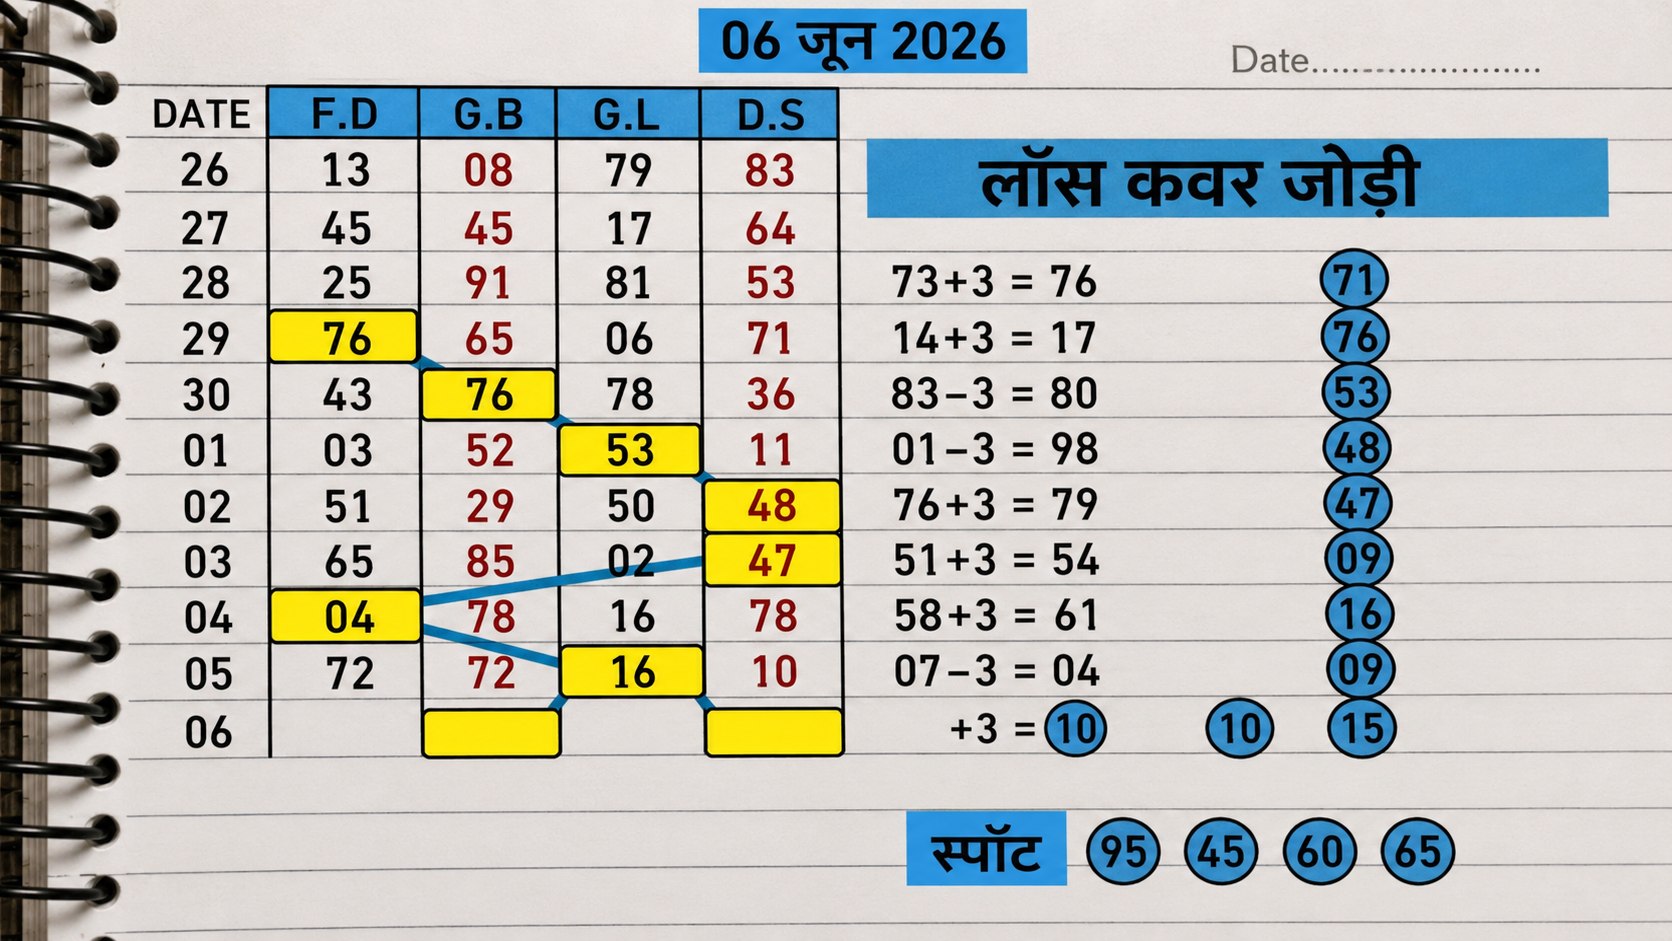 06 जून 2026
Date............................
DATE F.D G.B G.L D.S
26 13 08 79 83
27 45 45 17 64
28 25 91 81 53
29 76 65 06 71
30 43 76 78 36
01 03 52 53 11
02 51 29 50 48
03 65 85 02 47
04 04 78 16 78
05 72 72 16 10
06
लॉस कवर जोड़ी
73+3 = 76 71
14+3 = 17 76
83−3 = 80 53
01−3 = 98 48
76+3 = 79 47
51+3 = 54 09
58+3 = 61 16
07−3 = 04 09
+3 = 10 10 15
स्पॉट 95 45 60 65